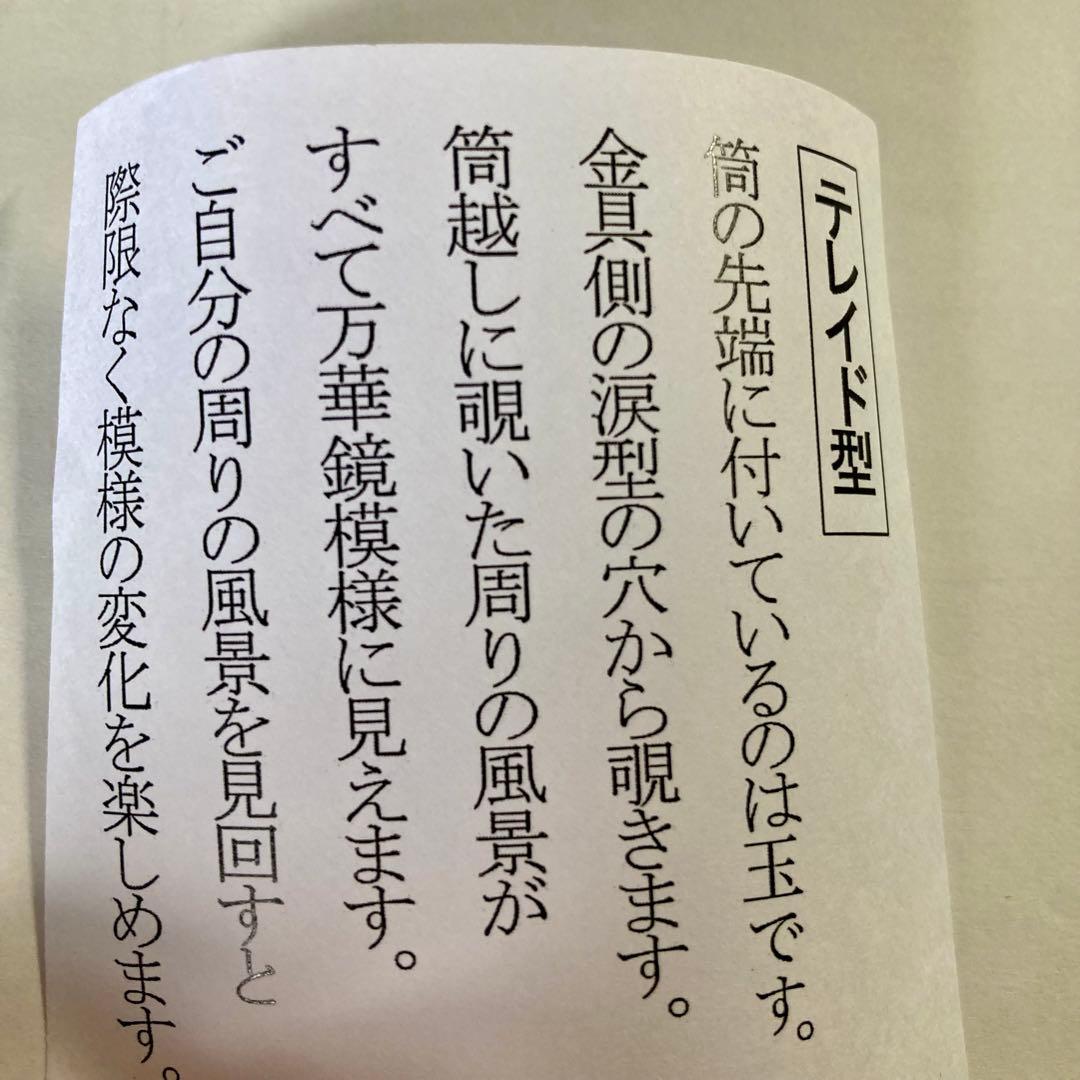 テレイド型
筒の先端に付いているのは玉です。
金具側の涙型の穴から覗きます。
筒越しに覗いた周りの風景が
すべて万華鏡模様に見えます。
ご自分の周りの風景を見回すと
際限なく模様の変化を楽しめます。